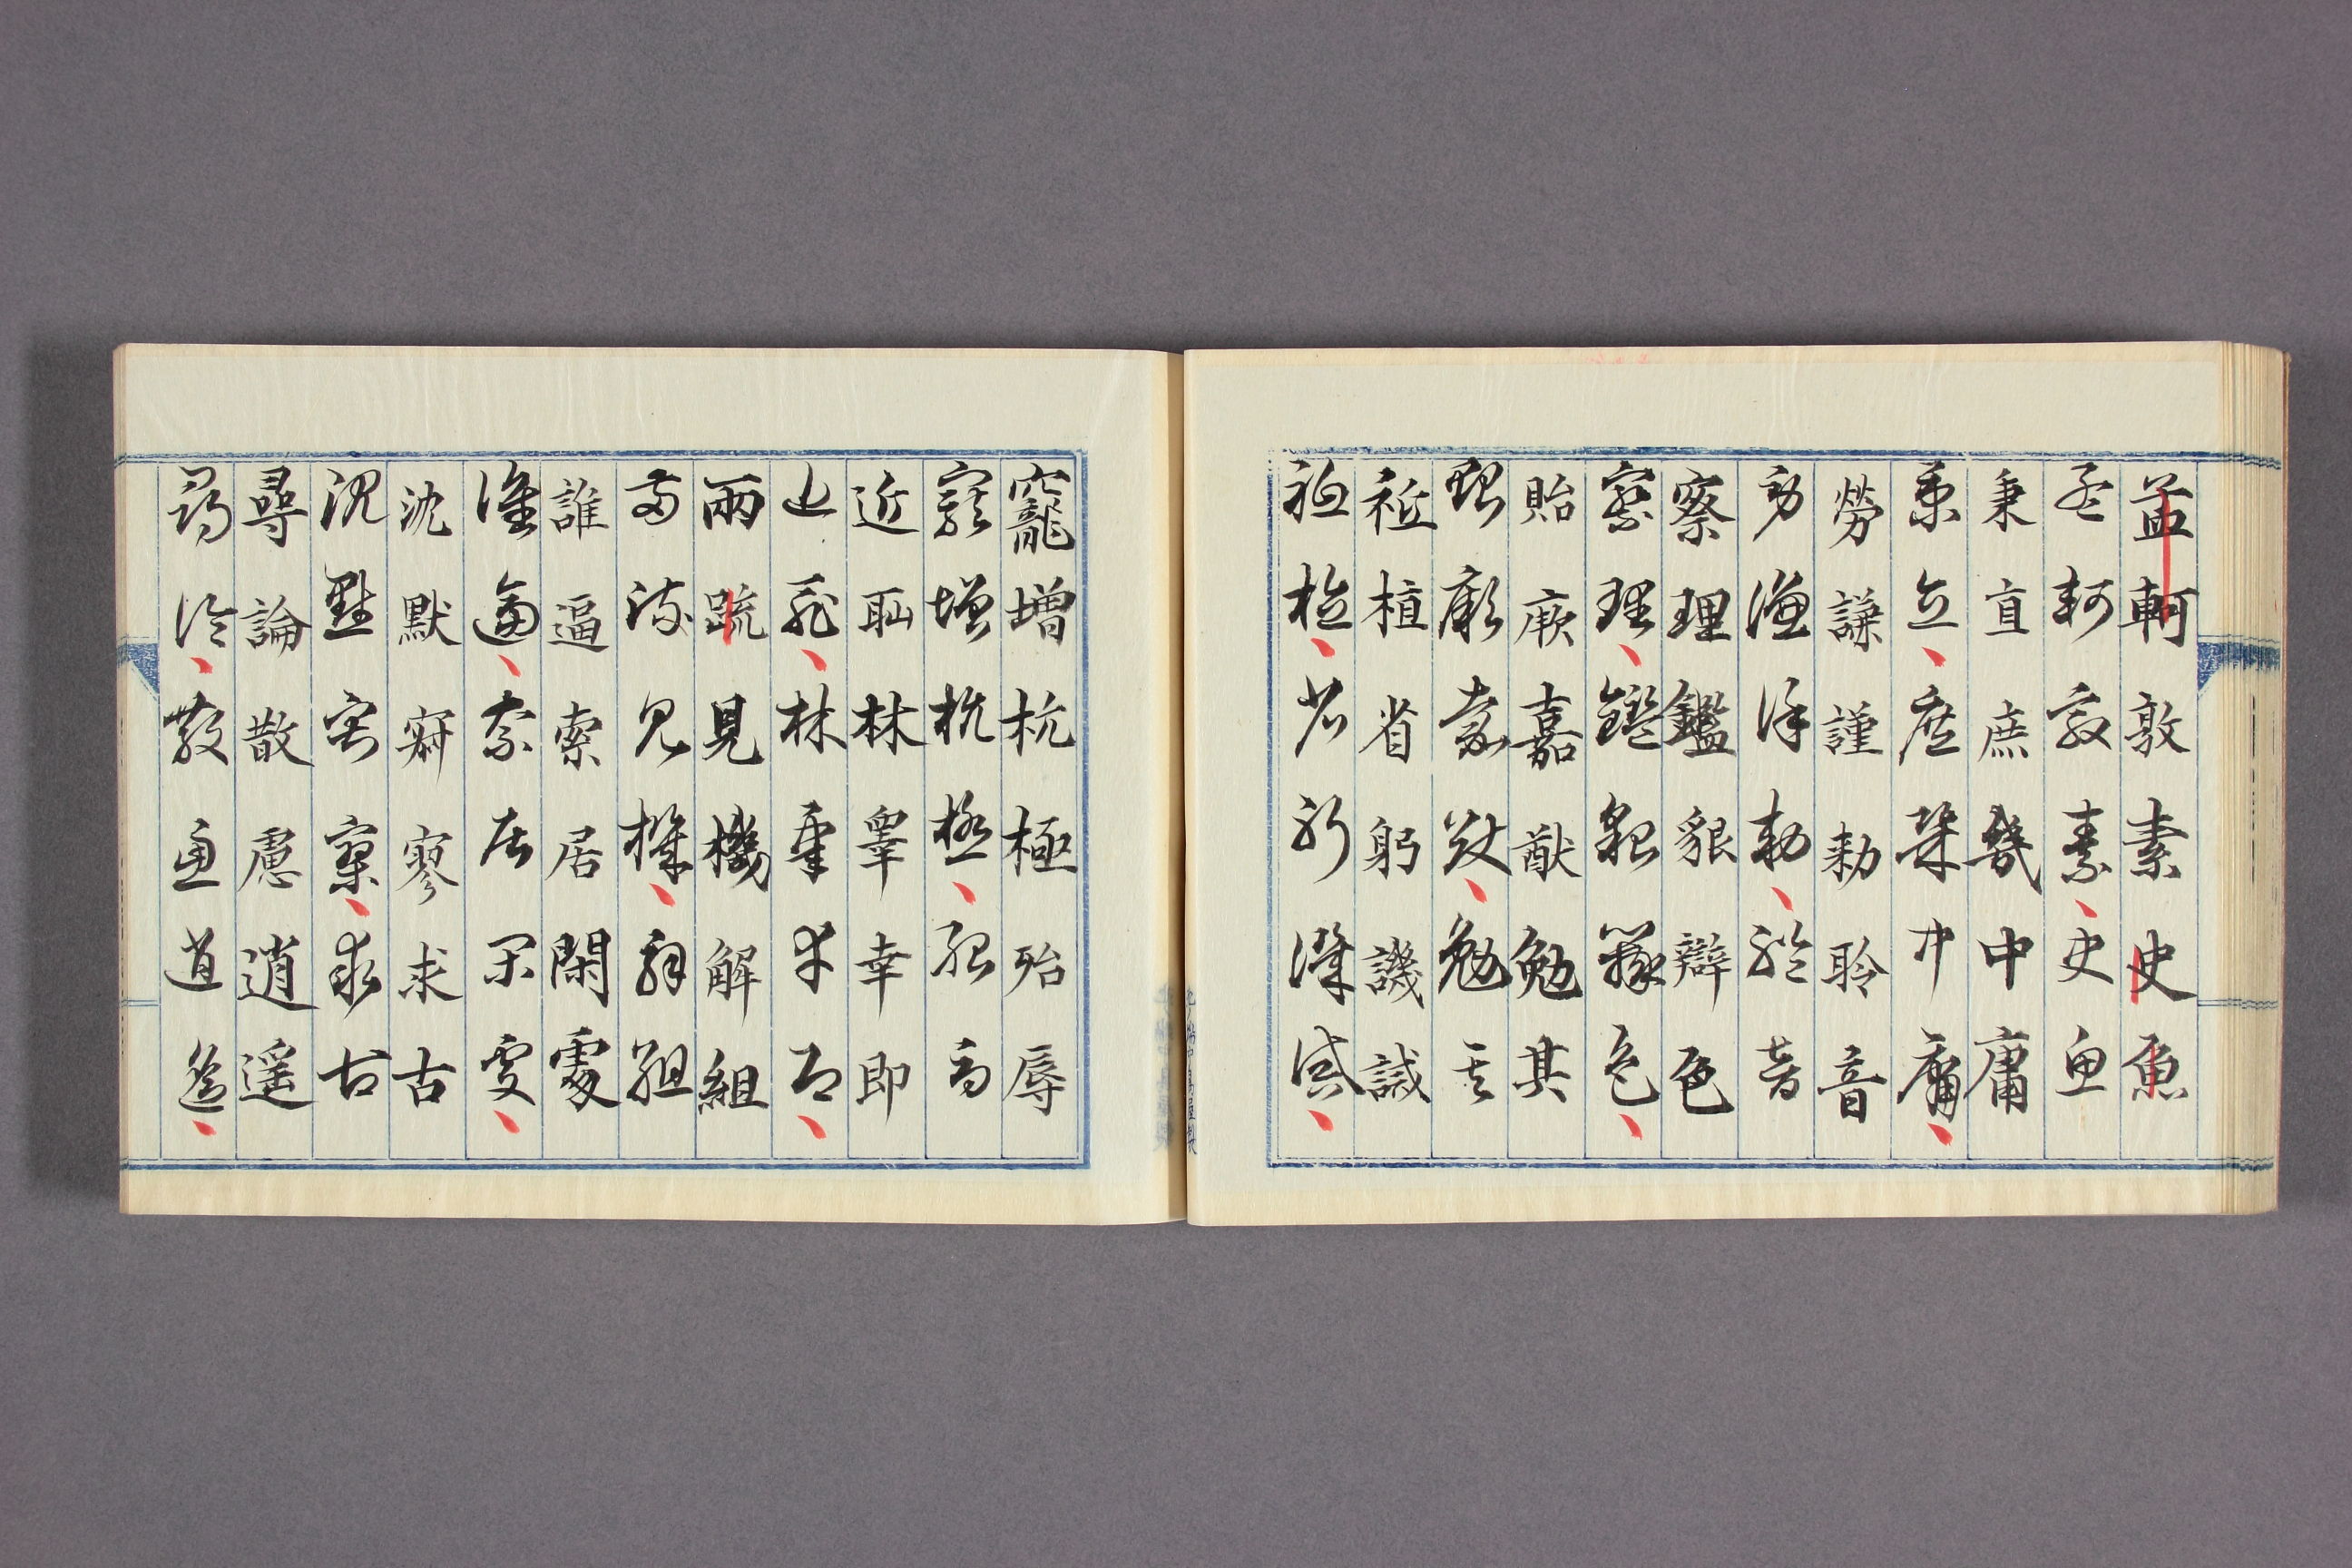 孟軻敦素史魚
孟軻敦素史魚
秉直庶幾中庸
秉直庶幾中庸
勞謙謹勅聆音
勞謙謹勅聆音
察理鑑貌辯色
察理鑑貌辯色
貽厥嘉猷勉其
貽厥嘉猷勉其
祗植省躬譏誡
祗植省躬譏誡
寵増抗極殆辱
寵増抗極殆辱
近耻林皋幸即
近耻林皋幸即
兩疏見機解組
兩疏見機解組
誰逼索居閑處
誰逼索居閑處
沈默寂寥求古
沈默寂寥求古
尋論散慮逍遥
尋論散慮逍遥